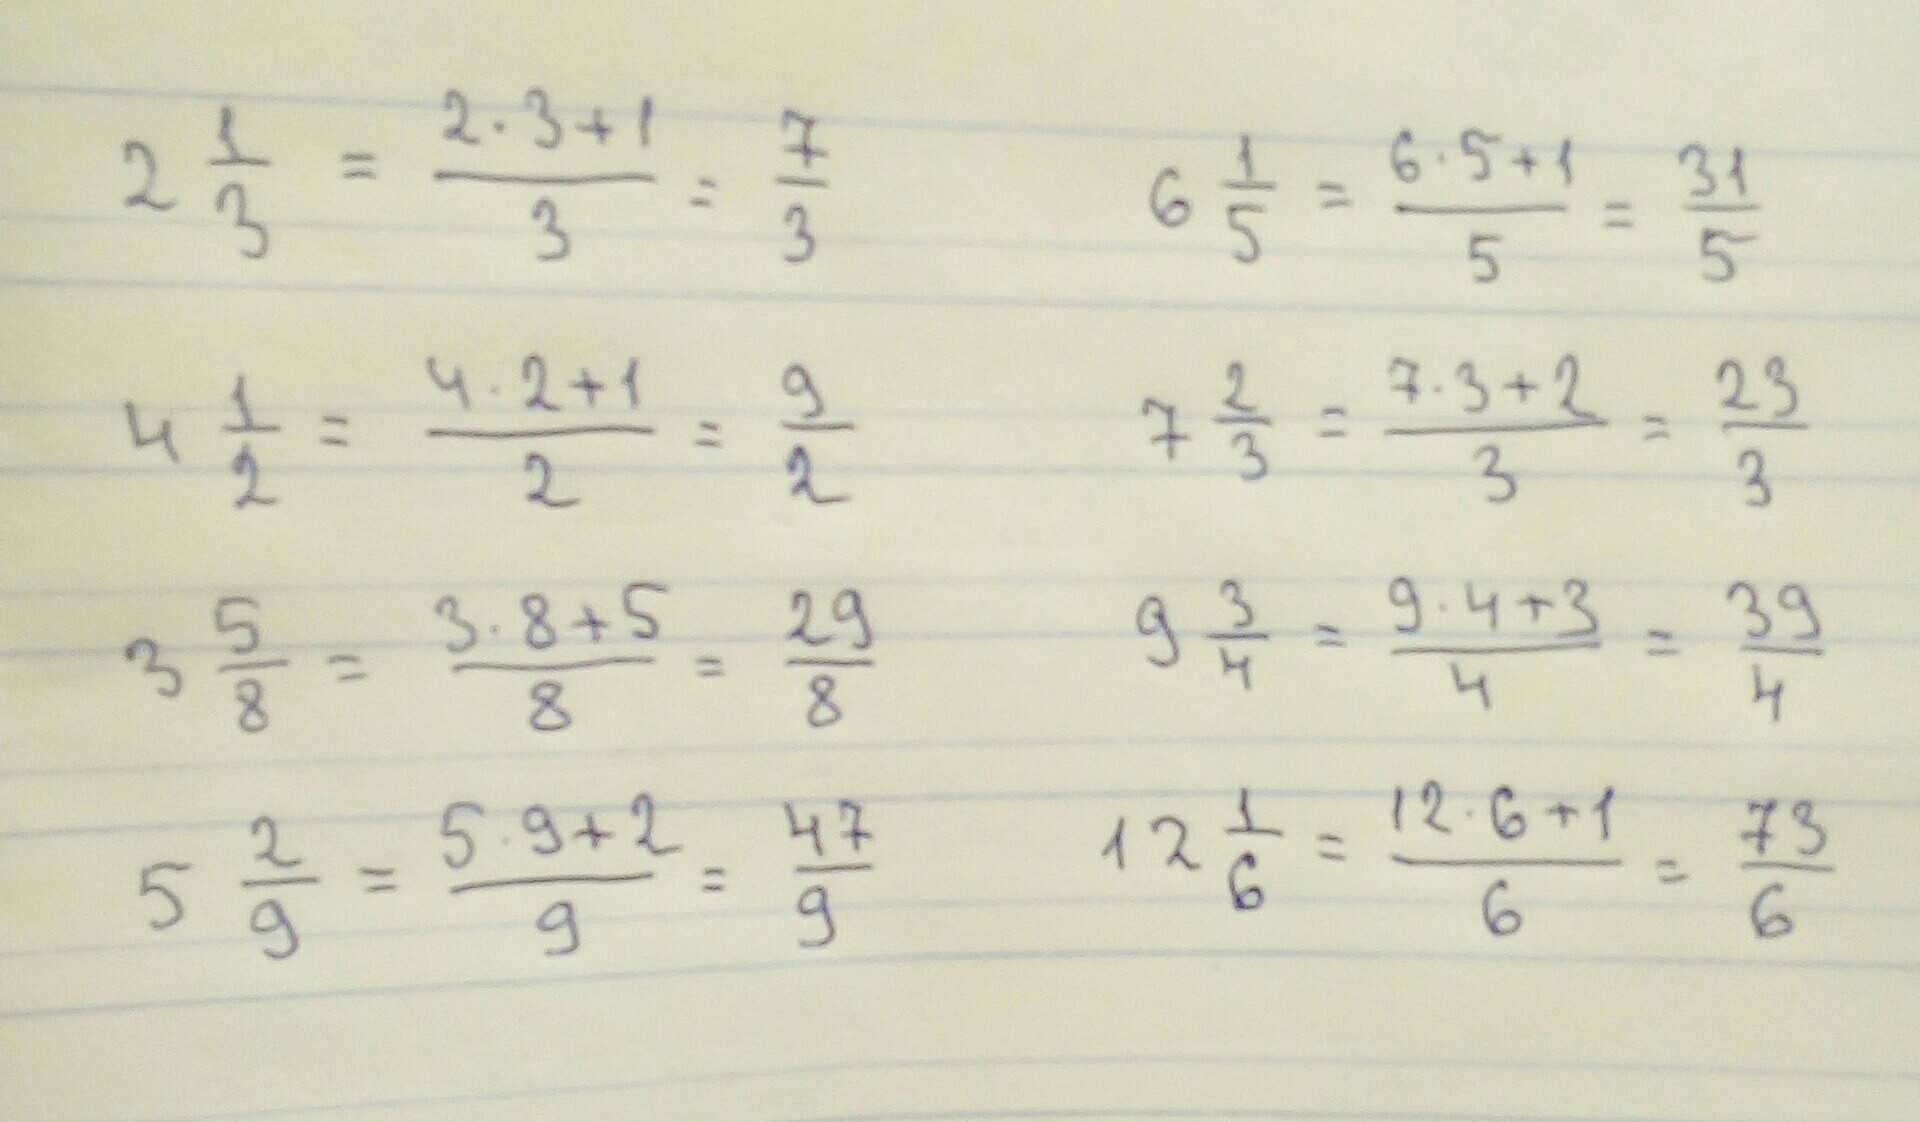 2 1/3 = (2·3+1)/3 = 7/3
4 1/2 = (4·2+1)/2 = 9/2
3 5/8 = (3·8+5)/8 = 29/8
5 2/9 = (5·9+2)/9 = 47/9
6 1/5 = (6·5+1)/5 = 31/5
7 2/3 = (7·3+2)/3 = 23/3
9 3/4 = (9·4+3)/4 = 39/4
12 1/6 = (12·6+1)/6 = 73/6